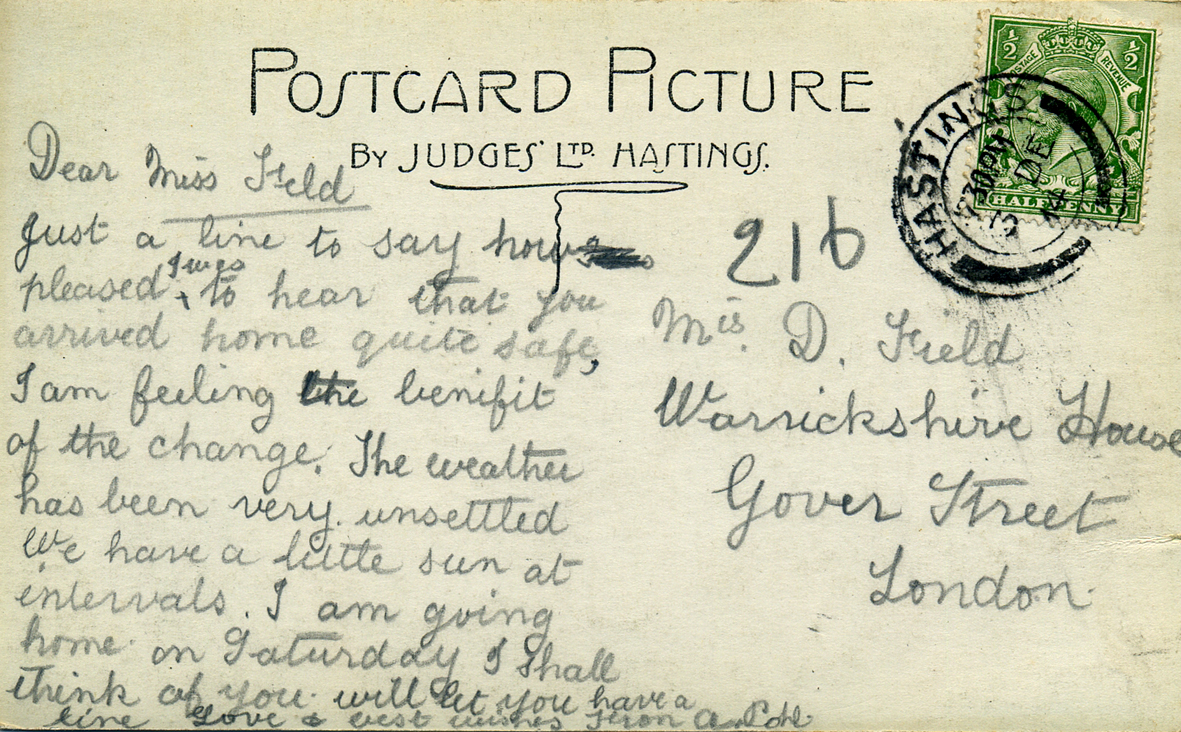 POSTCARD PICTURE
BY JUDGES' LTD. HASTINGS.
½ ½
POSTAGE REVENUE
HALFPENNY
HASTINGS
30 PM
DE
14
Dear Miss Field
Just a line to say how
pleased I was to hear that you
arrived home quite safe,
I am feeling the benifit
of the change. The weather
has been very unsettled
We have a little sun at
intervals. I am going
home on Saturday I shall
think of you will let you have a
line Love & best wishes from A.
216
Mis D. Field
Warrickshire House
Gover Street
London